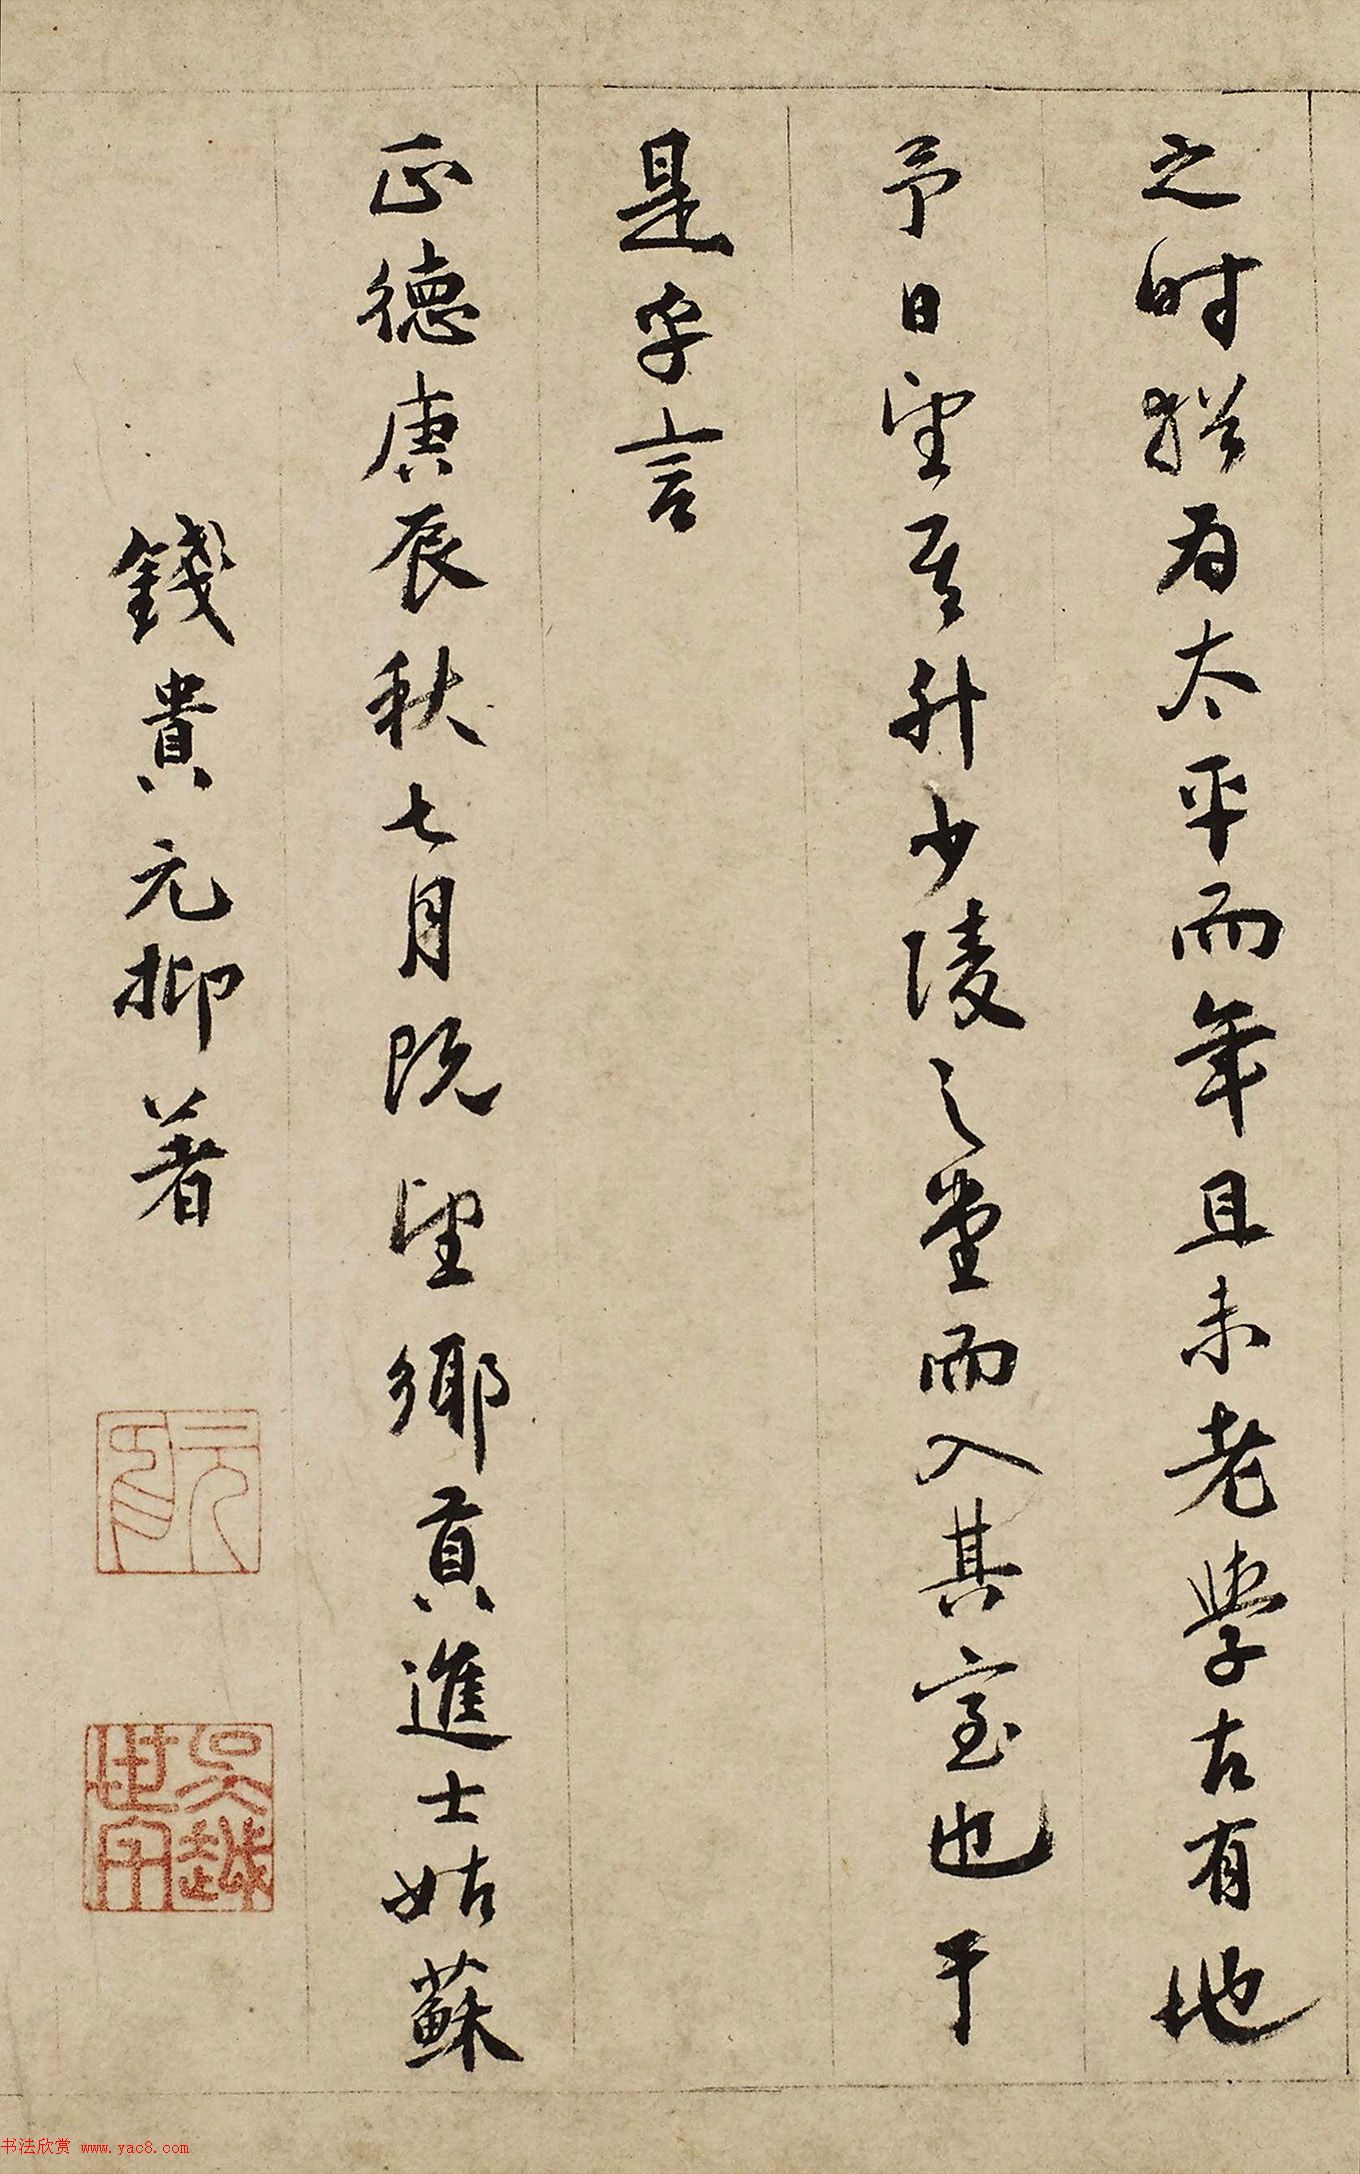 之时猶为太平而年且未老學古有地
予日望其升少陵之堂而入其室也于
是乎言
正德庚辰秋七月既望鄉貢進士姑蘇
錢貴元抑著
元抑
吳越世家
书法欣赏 www.yac8.com